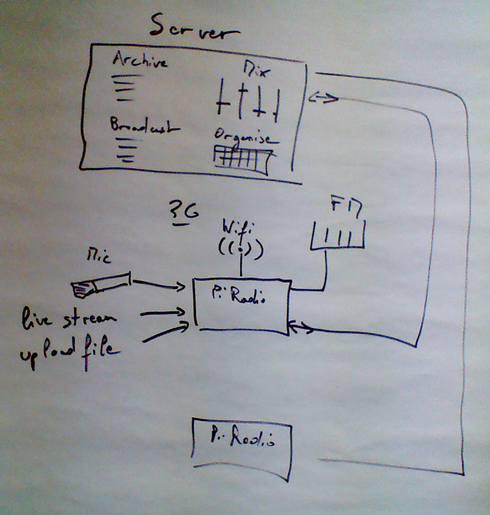 Server
Archive
Mix
Broadcast
Organise
3G
FM
Wifi
Mic
Pi Radio
live stream
upload file
Pi Radio